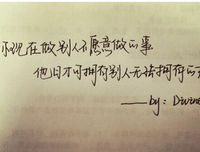 你现在做别人不愿意做的事
他日才可拥有别人无法拥有的
——by：Divine